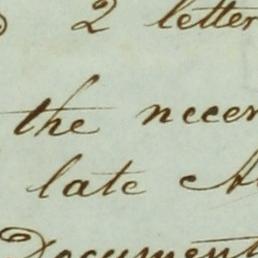 2 letter
the necer
late A
Document